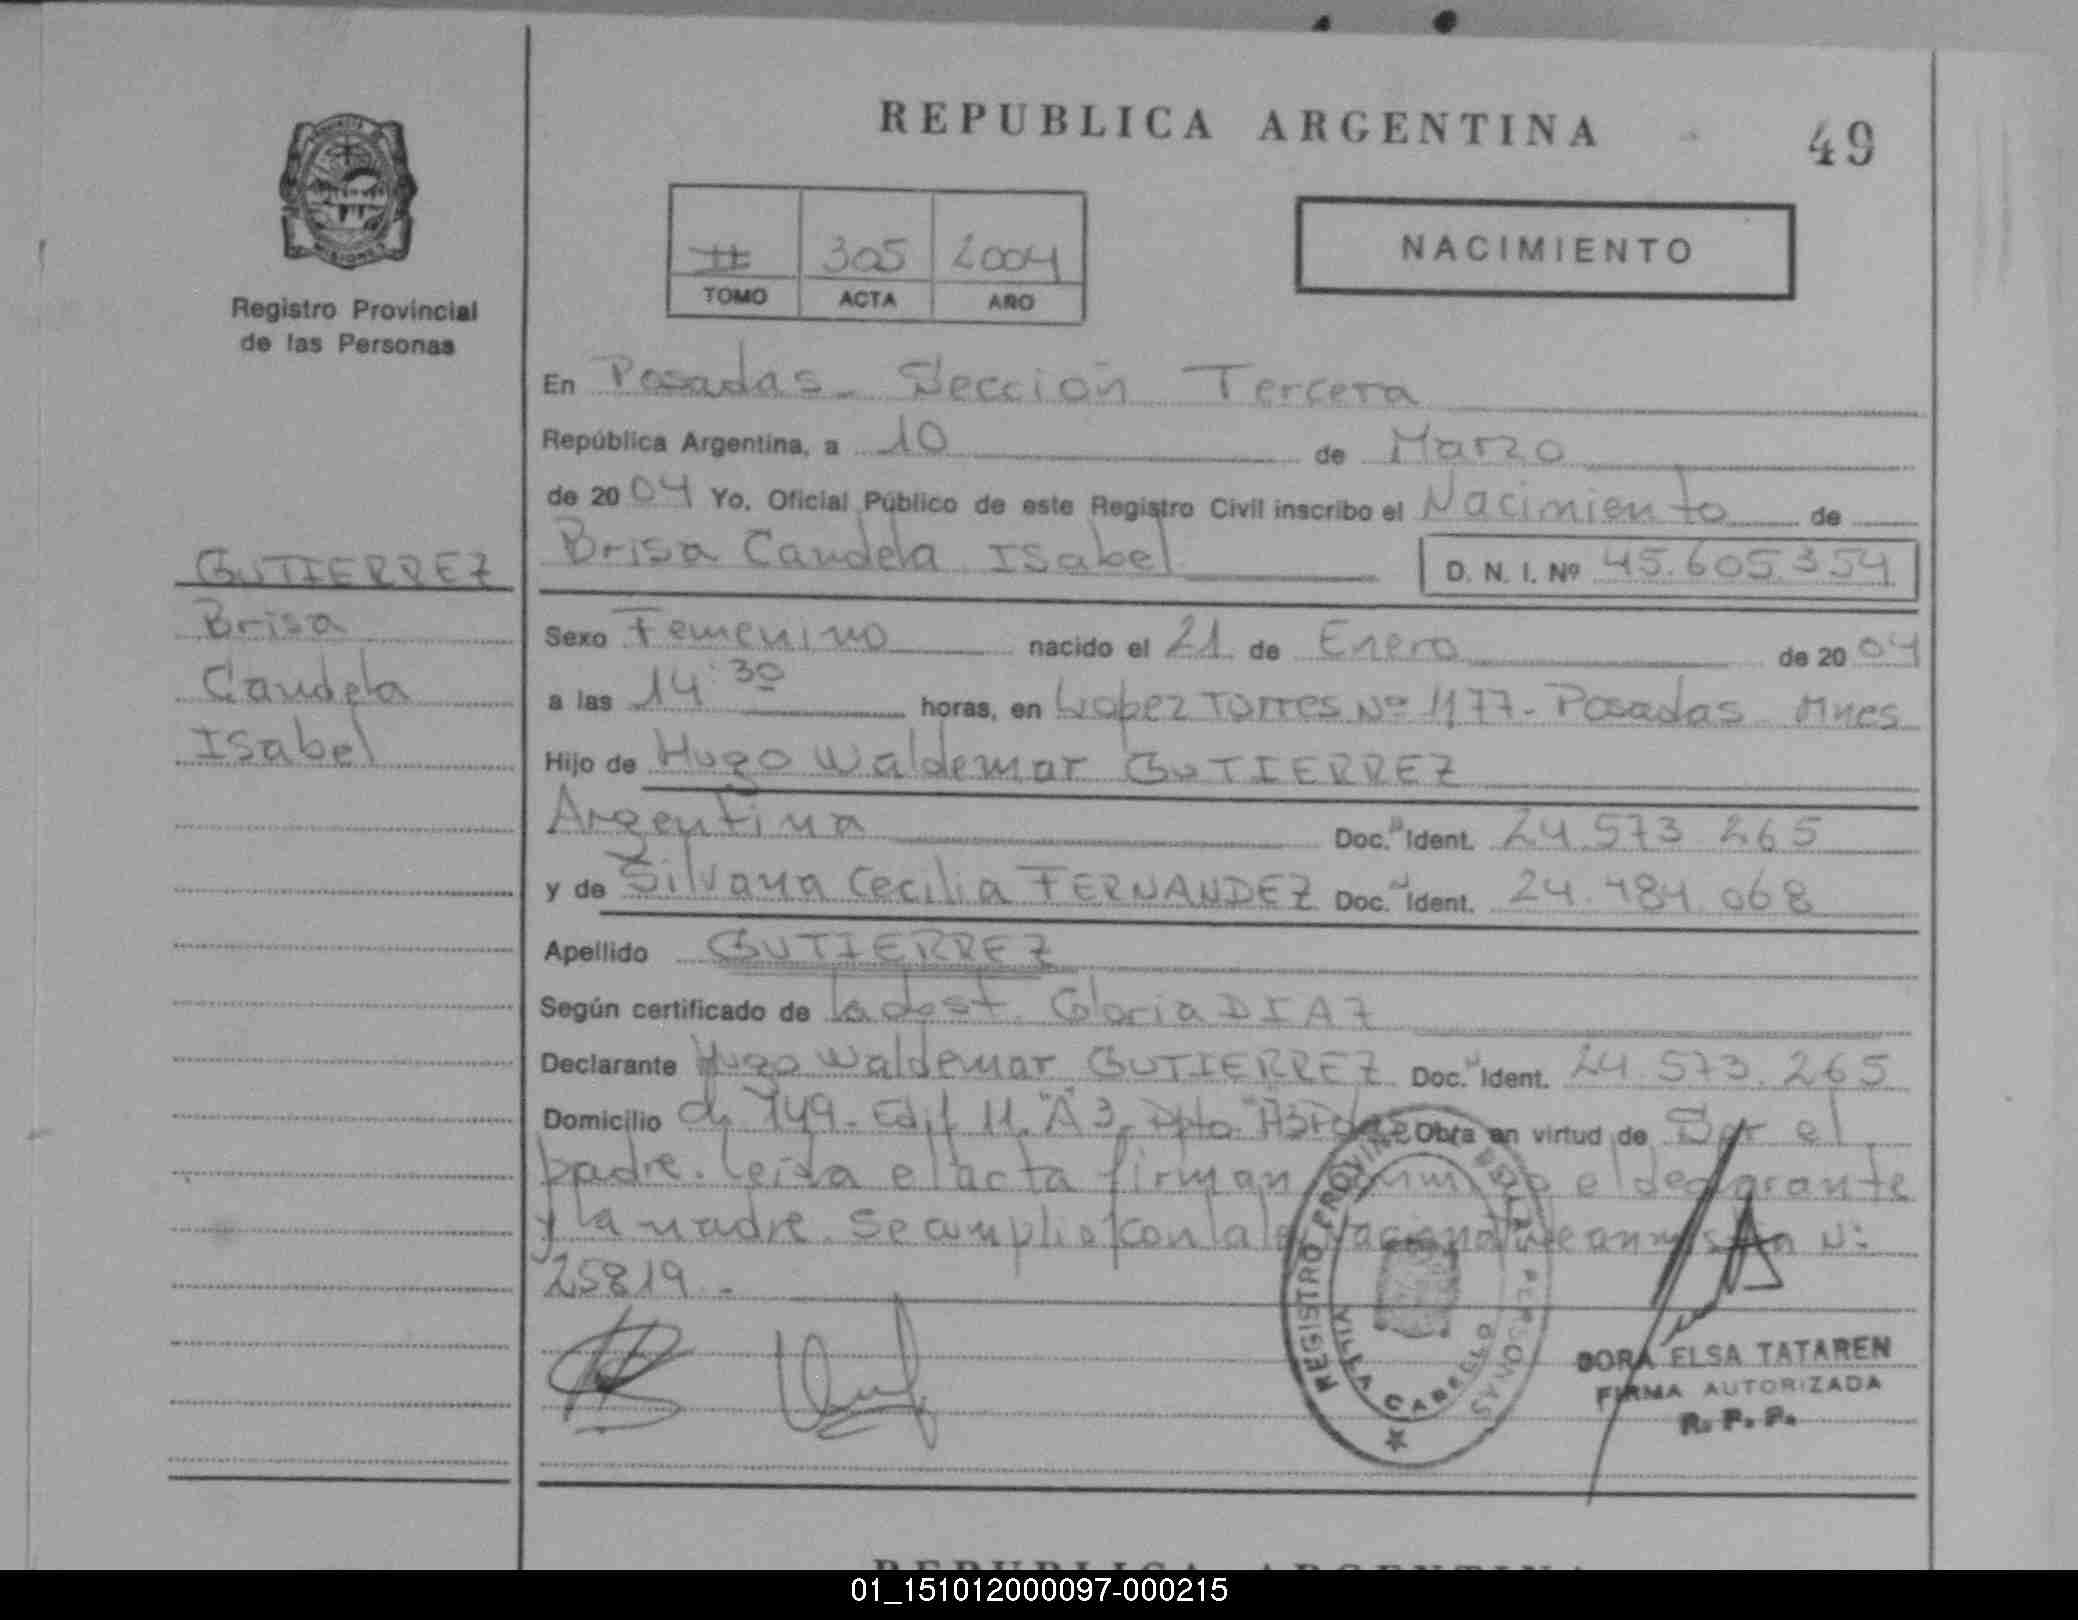 REPUBLICA ARGENTINA
49
II 305 2004
TOMO ACTA AÑO
NACIMIENTO
Registro Provincial
de las Personas
En Posadas - Sección Tercera
República Argentina, a 10 de Marzo
de 2004 Yo, Oficial Público de este Registro Civil inscribo el Nacimiento de
Brisa Candela Isabel D. N. I. Nº 45.605.354
GUTIERREZ
Brisa
Candela
Isabel
Sexo Femenino nacido el 21 de Enero de 2004
a las 14:30 horas, en Lopez Torres Nº 1177 - Posadas Mnes
Hijo de Hugo Waldemar GUTIERREZ
Argentina Doc. Ident. 24.573.265
y de Silvana Cecilia FERNANDEZ Doc. Ident. 24.484.068
Apellido GUTIERREZ
Según certificado de la obst. Gloria DIAZ
Declarante Hugo Waldemar GUTIERREZ Doc. Ident. 24.573.265
Domicilio Ch 149 - Edif 11 "A" 3 Dpto. Obra en virtud de Ser el
padre. Leida el acta firman conmigo el declarante
y la madre. Se cumplio con la ley Nacional de N:
25819 -
REGISTRO PROVINCIAL DE LAS PERSONAS
VILLA CABELLO
DORA ELSA TATAREN
FIRMA AUTORIZADA
R. P. P.
REPUBLICA ARGENTINA
01_151012000097-000215